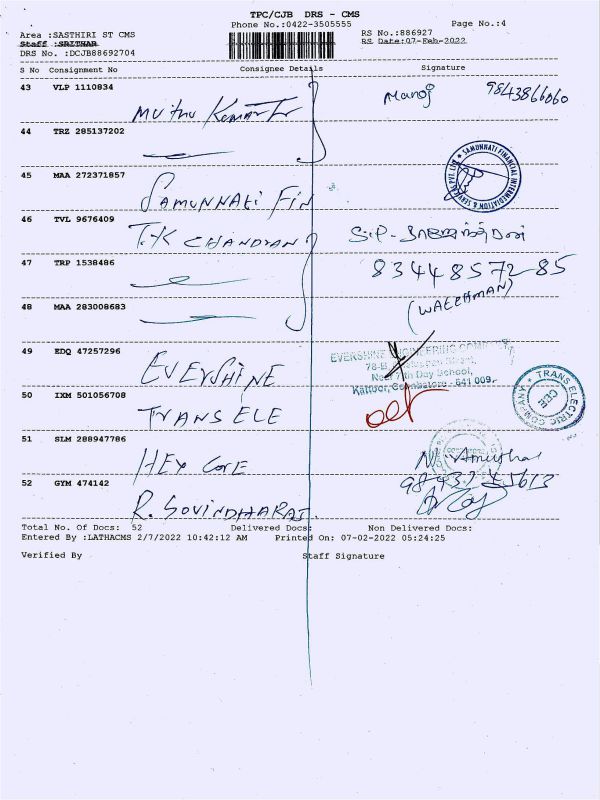 TPC/CJB DRS - CMS
Phone No.:0422-3505555
Page No.:4
Area :SASTHIRI ST CMS
Staff :SRITHAR
DRS No. :DCJB88692704
RS No.:886927
RS Date:07-Feb-2022
S No Consignment No Consignee Details Signature
43 VLP 1110834
Muthu Kumar Manoj 9843866060
44 TRZ 285137202
45 MAA 272371857
SAMUNNATI FINANCIAL INTERMEDIATION & SERVICES PVT. LTD
SAMUNNATI FIN
46 TVL 9676409
T.K CHANDRAN
47 TRP 1538486
83448572-85
(WATERMAN)
48 MAA 283008683
49 EDQ 47257296
EVERSHINE
EVERSHINE ENGINEERING COMPANY
78-B
Near 7th Day School,
Kattoor, Coimbatore - 641 009.
50 IXM 501056708
TRANS ELE
TRANS ELECTRIC COMPANY
CBE
51 SLM 288947786
HEX CORE
52 GYM 474142
R. GOVINDHARAJ
Total No. Of Docs: 52 Delivered Docs: Non Delivered Docs:
Entered By :LATHACMS 2/7/2022 10:42:12 AM Printed On: 07-02-2022 05:24:25
Verified By Staff Signature